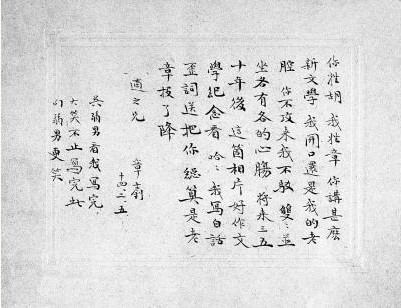 你姓胡 我姓章 你講甚麼
新文學 我開口還是我的老
腔 你不攻來我不駁 雙〻並
坐各有各的心腸 將來三五
十年後 這箇相片好作文
學紀念看 哈〻我寫白話
歪詞送把你 總算是老
章投了降
適之兄
章
十四 二 五
吳弱男看我寫完
大笑不止 寫完此
弱男更笑